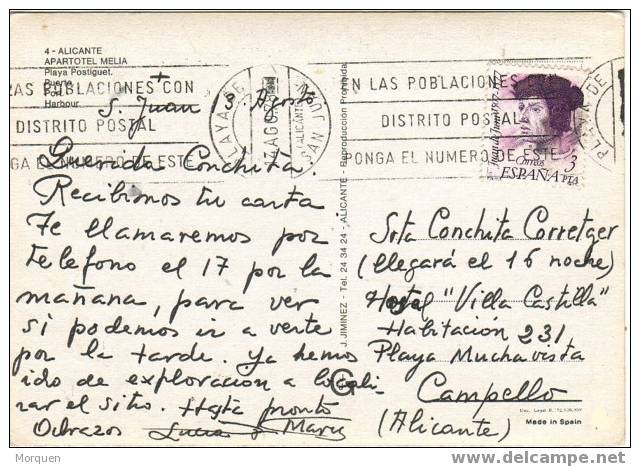 4 - ALICANTE
APARTOTEL MELIA
Playa Postiguet.
Puerto
Port
Harbour.
S. Juan 3 Agosto
Querida Conchita.
Recibimos tu carta
Te llamaremos por
telefono el 17 por la
mañana, para ver
si podemos ir a verte
por la tarde. Ya hemos
ido de exploración a locali
zar el sitio. Hasta pronto
Lucia y
J. JIMINEZ - Tel. 24 34 24 - ALICANTE - Reproducción Prohibida
ZAS POBLACIONES CON
DISTRITO POSTAL
PONGA EL NUMERO DE ESTE
PLAYA DE
SAN JUAN
ALICANTE
AGO
EN LAS POBLACIONES
DISTRITO POSTAL
PONGA EL NUMERO DE ESTE
PLAYA DE
Correos
3
ESPAÑA PTA
Srta Conchita Corretger
(llegará el 16 noche)
Hostal "Villa Castilla"
Habitación 231
Playa Muchavista
Campello
(Alicante)
G
Made in Spain
Morquen
delcampe.net